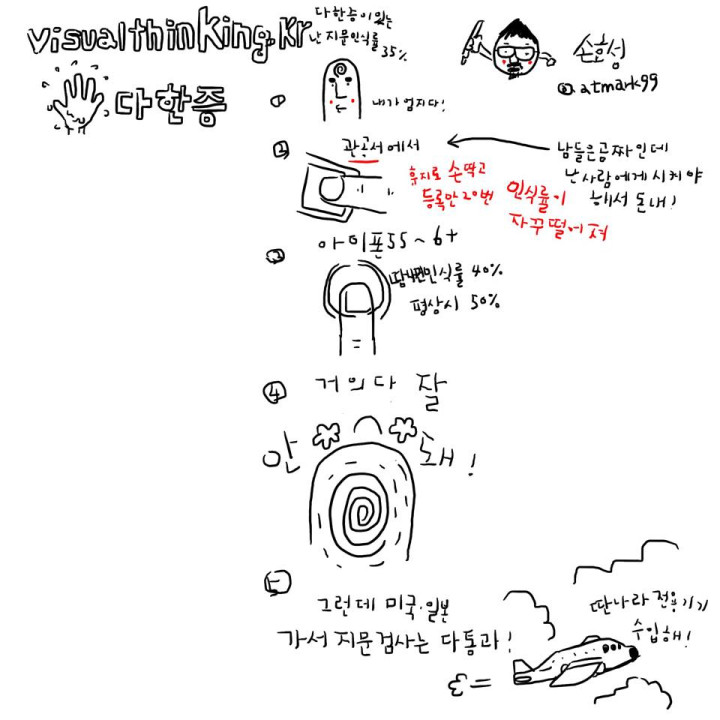 visualthinking.kr
다한증
다한증이 있는
난 지문인식률
35%
손호성
@atmark99
① 내가 엄지다!
② 관공서에서
휴지로 손딱고
등록만 20번
인식률이
자꾸떨어져
남들은공짜인데
난사람에게시키야
해서 돈내!
③ 아이폰5S~6+
땀나면인식률 40%
평상시 50%
④ 거의다 잘
안돼!
⑤ 그런데 미국·일본
가서 지문검사는 다통과!
딴나라 전용기기
수입해!